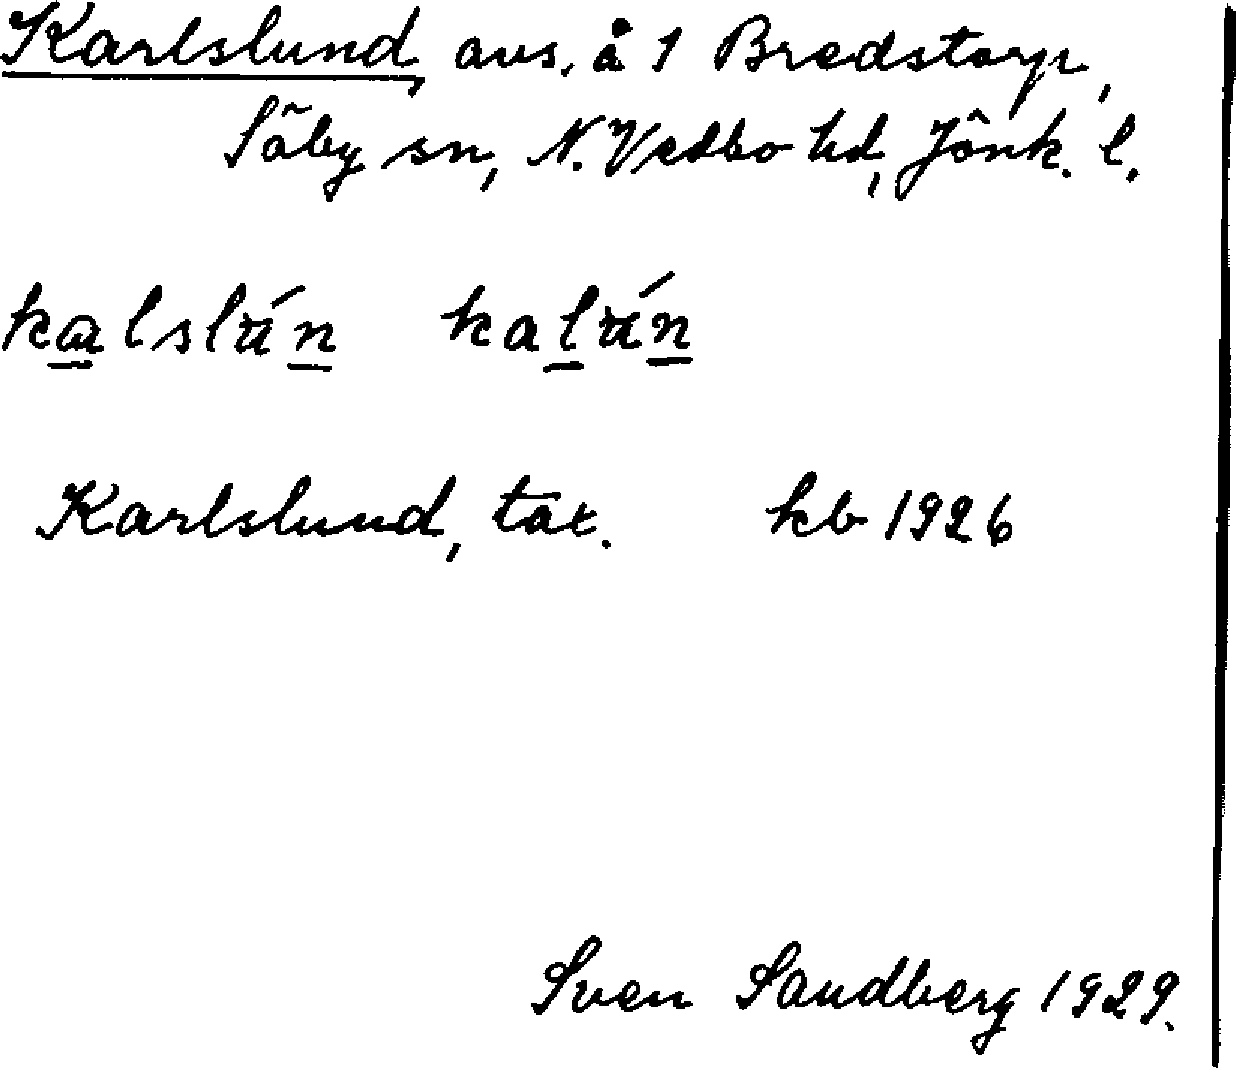 Karlslund, avs. å 1 Bredstorp,
Säby sn, N. Vedbo hd, Jönk. l.
kalslún kalún
Karlslund, tax. kb 1926
Sven Sandberg 1929.